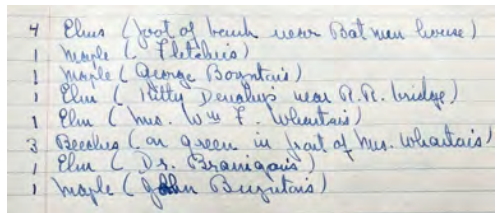 4 Elms (foot of bank near Bat man house)
1 Maple (. Fletcher's)
1 Maple (George Boynton's)
1 Elm (Kitty Denahy's near R.R. bridge)
1 Elm (Mrs. Wm F. Wharton's)
3 Beeches (on green in front of Mrs. Wharton's)
1 Elm (Dr. Branigan's)
1 Maple (John Buynton's)